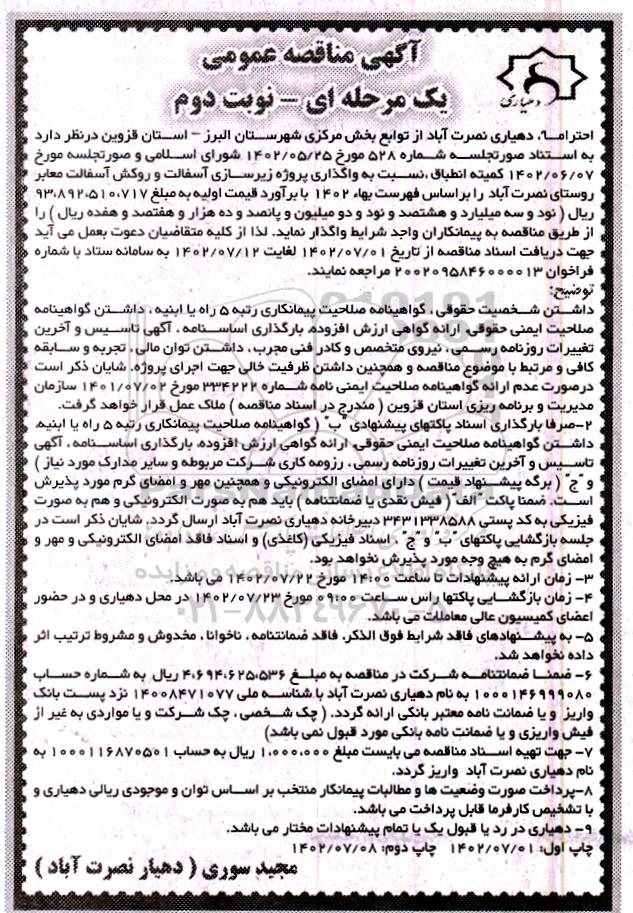 آگهی مناقصه عمومی
یک مرحله ای – نوبت دوم
دهیاری
احتراماً، دهیاری نصرت آباد از توابع بخش مرکزی شهرستان البرز – استان قزوین درنظر دارد
به استناد صورتجلسه شماره ۵۲۸ مورخ ۱۴۰۲/۰۵/۲۵ شورای اسلامی و صورتجلسه مورخ
۱۴۰۲/۰۶/۰۷ کمیته انطباق ،نسبت به واگذاری پروژه زیرسازی آسفالت و روکش آسفالت معابر
روستای نصرت آباد را براساس فهرست بهاء ۱۴۰۲ با برآورد قیمت اولیه به مبلغ ۹۳،۸۹۲،۵۱۰،۷۱۷
ریال ( نود و سه میلیارد و هشتصد و نود و دو میلیون و پانصد و ده هزار و هفتصد و هفده ریال ) را
از طریق مناقصه به پیمانکاران واجد شرایط واگذار نماید. لذا از کلیه متقاضیان دعوت بعمل می آید
جهت دریافت اسناد مناقصه از تاریخ ۱۴۰۲/۰۷/۰۱ لغایت ۱۴۰۲/۰۷/۱۲ به سامانه ستاد با شماره
فراخوان ۲۰۰۲۰۹۵۸۴۶۰۰۰۰۱۳ مراجعه نمایند.
توضیح:
داشتن شخصیت حقوقی ، گواهینامه صلاحیت پیمانکاری رتبه ۵ راه یا ابنیه ، داشتن گواهینامه
صلاحیت ایمنی حقوقی، ارائه گواهی ارزش افزوده، بارگذاری اساسنامه ، آگهی تاسیس و آخرین
تغییرات روزنامه رسمی ، نیروی متخصص و کادر فنی مجرب ، داشتن توان مالی ، تجربه و سابقه
کافی و مرتبط با موضوع مناقصه و همچنین داشتن ظرفیت خالی جهت اجرای پروژه. شایان ذکر است
درصورت عدم ارائه گواهینامه صلاحیت ایمنی نامه شماره ۳۳۴۲۲۲ مورخ ۱۴۰۱/۰۷/۰۲ سازمان
مدیریت و برنامه ریزی استان قزوین ( مندرج در اسناد مناقصه ) ملاک عمل قرار خواهد گرفت.
۲-صرفا بارگذاری اسناد پاکتهای پیشنهادی "ب" ( گواهینامه صلاحیت پیمانکاری رتبه ۵ راه یا ابنیه،
داشتن گواهینامه صلاحیت ایمنی حقوقی، ارائه گواهی ارزش افزوده، بارگذاری اساسنامه ، آگهی
تاسیس و آخرین تغییرات روزنامه رسمی ، رزومه کاری شرکت مربوطه و سایر مدارک مورد نیاز )
و "ج" ( برگه پیشنهاد قیمت ) دارای امضای الکترونیکی و همچنین مهر و امضای گرم مورد پذیرش
است. ضمنا پاکت "الف" ( فیش نقدی یا ضمانتنامه ) باید هم به صورت الکترونیکی و هم به صورت
فیزیکی به کد پستی ۳۴۳۱۳۳۸۵۸۸ دبیرخانه دهیاری نصرت آباد ارسال گردد. شایان ذکر است در
جلسه بازگشایی پاکتهای "ب" و "ج" ، اسناد فیزیکی (کاغذی) و اسناد فاقد امضای الکترونیکی و مهر و
امضای گرم به هیچ وجه مورد پذیرش نخواهد بود.
۳- زمان ارائه پیشنهادات تا ساعت ۱۴:۰۰ مورخ ۱۴۰۲/۰۷/۲۲ می باشد.
۴- زمان بازگشایی پاکتها راس ساعت ۰۹:۰۰ مورخ ۱۴۰۲/۰۷/۲۳ در محل دهیاری و در حضور
اعضای کمیسیون عالی معاملات می باشد.
۵- به پیشنهادهای فاقد شرایط فوق الذکر، فاقد ضمانتنامه ، ناخوانا ، مخدوش و مشروط ترتیب اثر
داده نخواهد شد.
۶- ضمنا ضمانتنامه شرکت در مناقصه به مبلغ ۴،۶۹۴،۶۲۵،۵۳۶ ریال به شماره حساب
۱۰۰۰۱۴۶۹۹۹۰۸۰ به نام دهیاری نصرت آباد با شناسه ملی ۱۴۰۰۸۴۷۱۰۷۷ نزد پست بانک
واریز و یا ضمانت نامه معتبر بانکی ارائه گردد. ( چک شخصی ، چک شرکت و یا مواردی به غیر از
فیش واریزی و یا ضمانت نامه بانکی مورد قبول نمی باشد)
۷- جهت تهیه اسناد مناقصه می بایست مبلغ ۱،۰۰۰،۰۰۰ ریال به حساب ۱۰۰۰۱۱۶۸۷۰۵۰۱ به
نام دهیاری نصرت آباد واریز گردد.
۸-پرداخت صورت وضعیت ها و مطالبات پیمانکار منتخب بر اساس توان و موجودی ریالی دهیاری و
با تشخیص کارفرما قابل پرداخت می باشد.
۹- دهیاری در رد یا قبول یک یا تمام پیشنهادات مختار می باشد.
چاپ اول: ۱۴۰۲/۰۷/۰۱ چاپ دوم: ۱۴۰۲/۰۷/۰۸
مجید سوری ( دهیار نصرت آباد )